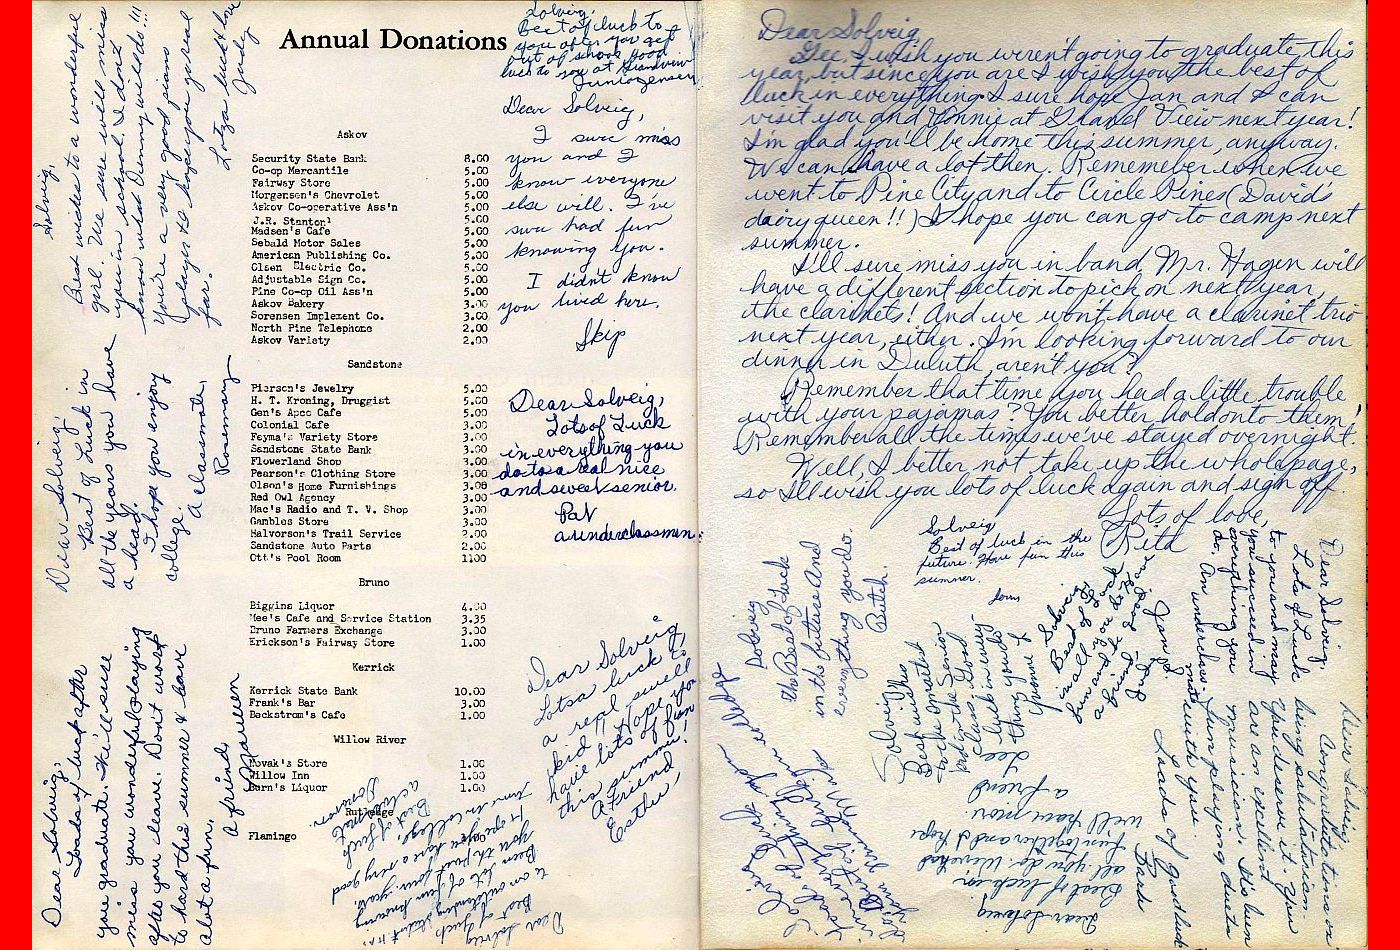 Annual Donations
Askov
Security State Bank 8.00
Co-op Mercantile 5.00
Fairway Store 5.00
Morgensen's Chevrolet 5.00
Askov Co-operative Ass'n 5.00
J.R. Stantorl 5.00
Madsen's Cafe 5.00
Sebald Motor Sales 5.00
American Publishing Co. 5.00
Olsen Electric Co. 5.00
Adjustable Sign Co. 5.00
Pine Co-op Oil Ass'n 5.00
Askov Bakery 3.00
Sorensen Implement Co. 3.00
North Pine Telephone 2.00
Askov Variety 2.00
Sandstone
Pierson's Jewelry 5.00
H. T. Kroning, Druggist 5.00
Gen's Apco Cafe 5.00
Colonial Cafe 3.00
Feyma's Variety Store 3.00
Sandstone State Bank 3.00
Flowerland Shop 3.00
Pearson's Clothing Store 3.00
Olson's Home Furnishings 3.00
Red Owl Agency 3.00
Mac's Radio and T. V. Shop 3.00
Gambles Store 3.00
Halvorson's Trail Service 2.00
Sandstone Auto Parts 2.00
Ott's Pool Room 1100
Bruno
Biggins Liquor 4.00
Mee's Cafe and Service Station 3.35
Bruno Farmers Exchange 3.00
Erickson's Fairway Store 1.00
Kerrick
Kerrick State Bank 10.00
Frank's Bar 3.00
Beckstrom's Cafe 1.00
Willow River
Novak's Store 1.00
Willow Inn 1.00
Barn's Liquor 1.00
Rutledge
Flamingo
Solveig,
Best wishes to a wonderful
girl. We sure will miss
you in school. I don't
know what Denny will do!!!
You're a very good piano
player so hope you go real
far.
Lotsa luck & love
Judy
Solveig,
Best of luck to
you after you get
out of school. Good
luck to you at Grandview
Junior Jensen
Dear Solveig,
I sure miss
you and I
know everyone
else will. I've
sure had fun
knowing you.
I didn't know
you lived here.
Skip
Dear Solveig,
Best of Luck in
all the years you have
a head.
I hope you enjoy
college.
A classmate,
Rosemary
Dear Solveig,
Lots of Luck
in everything you
do to a real nice
and sweet senior.
Pat
a underclassmen.
Dear Solveig,
Loads of luck after
you graduate. We'll sure
miss you wonderful playing
after you leave. Don't work
to hard this summer & have
alot a fun.
A friend
Mareen
Dear Solveig
Lotsa luck to
a real swell
kid. Hope you
have lots of fun
this summer!
A Friend,
Esther
Dear Solveig
Best of Luck
to an outstanding student
Best of luck
a classmate
Dear Solveig,
Gee, I wish you weren't going to graduate this
year, but since you are I wish you the best of
luck in everything. I sure hope Jan and I can
visit you and Connie at Grand View next year!
I'm glad you'll be home this summer, anyway.
We can have a lot then. Rememeber when we
went to Pine City and to Circle Pines (David's
dairy queen!!) I hope you can go to camp next
summer.
I'll sure miss you in band. Mr. Hagen will
have a different section to pick on next year,
the clarinets! And we won't have a clarinet trio
next year, either. I'm looking forward to our
dinner in Duluth, aren't you?
Remember that time you had a little trouble
with your pajamas? You better hold onto them!
Remember all the times we've stayed overnight.
Well, I better not take up the whole page,
so I'll wish you lots of luck again and sign off.
Lots of love,
Rita
Solveig
Best of luck in the
future. Have fun this
summer.
Solveig
The Best of Luck
in the future And
everything you do.
Butch.
Solveig,
Best of Luck
in all
Solveig
Best wishes
to the smartest
in the Senior
class. Good
luck in every-
thing you do
Dear Solveig
Lots of Luck
to you and may
you succeed in
everything you
do.
An underclass-
mate
Dear Solveig
Congratulations on
being salutatorian.
You deserve it. You
are an excellent
musician. It's been
fun playing duets
with you.
Loads of Good luck
Barda
Dear Solveig
Best of luck in
all you do. We've had
fun together and I hope
will have more
a friend
Lee